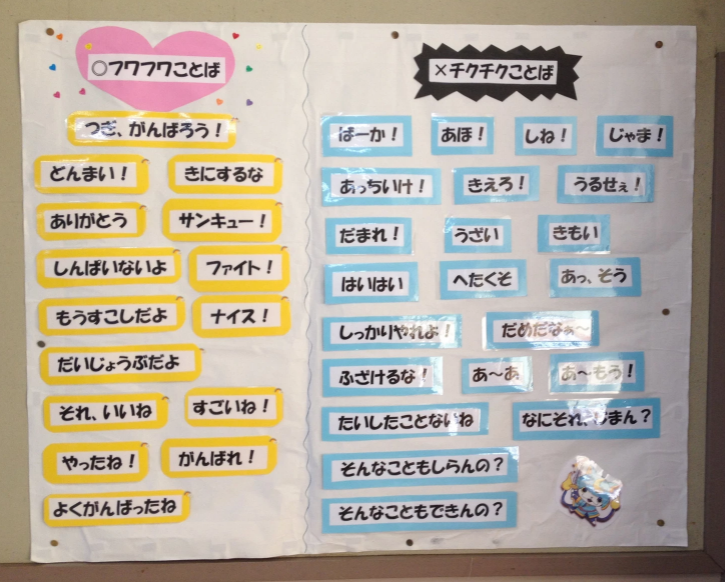 ○フワフワことば
つぎ、がんばろう！
どんまい！
きにするな
ありがとう
サンキュー！
しんぱいないよ
ファイト！
もうすこしだよ
ナイス！
だいじょうぶだよ
それ、いいね
すごいね！
やったね！
がんばれ！
よくがんばったね
×チクチクことば
ばーか！
あほ！
しね！
じゃま！
あっちいけ！
きえろ！
うるせぇ！
だまれ！
うざい
きもい
はいはい
へたくそ
あっ、そう
しっかりやれよ！
だめだなぁ〜
ふざけるな！
あ〜あ
あ〜もう！
たいしたことないね
なにそれ、じまん？
そんなこともしらんの？
そんなこともできんの？